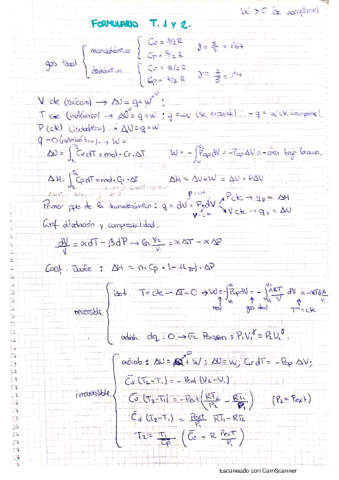 W > 0 (se comprime)
FORMULARIO T. 1 y 2.
gas ideal { monoatómico { Cv = 3/2 R
Cp = 5/2 R γ = 5/3 = 1'67
diatómico { Cv = 5/2 R
Cp = 7/2 R γ = 7/5 = 1'4
V cte (isócoro) → ΔU = q + W⁰
T cte (isotermo) → ΔU⁰ = q + W ; q = -W (se expande) ; -q = W (se comprime)
P (cte) (isobárico) → ΔU = q + W
q = 0 (adiabático) → W =
ΔU = ∫ Cv dT = n mol · Cv · ΔT W = -∫ Pop dV = -Pop ΔV = -área bajo la curva
ΔH = ∫ Cp dT = n mol · Cp · ΔT ΔH = ΔU + W = ΔU + PΔV
Primer ppio de la termodinámica: q = dU + Pop dV P cte → qp = ΔH
V cte → qv = ΔU
Coef. dilatación y compresibilidad.
dV/V = α dT - β dP → Ln V2/V1 = α ΔT - α ΔP
Coef. Joule : ΔH = n · Cp · (-μJT) · ΔP
reversible { isot. T = cte → ΔT = 0 → W = -∫ Pop dV = -∫ nRT/V dV = -nRT
rev gas ideal T = cte
adiab. dq = 0 → Ec. Poisson = P1V1^γ = P2V2^γ
irreversible { adiab : ΔU = q⁰ + W ; ΔU = W ; Cv dT = -Pop ΔV ;
Cv (T2 - T1) = -Pext (V2 - V1)
Cv (T2 - T1) = -Pext (RT2/P2 - RT1/P1) (P2 = Pext)
Cv (T2 - T1) = Pext/P1 RT1 - RT2
T2 = T1/Cp (Cv + R Pext/P1)
Escaneado con CamScanner